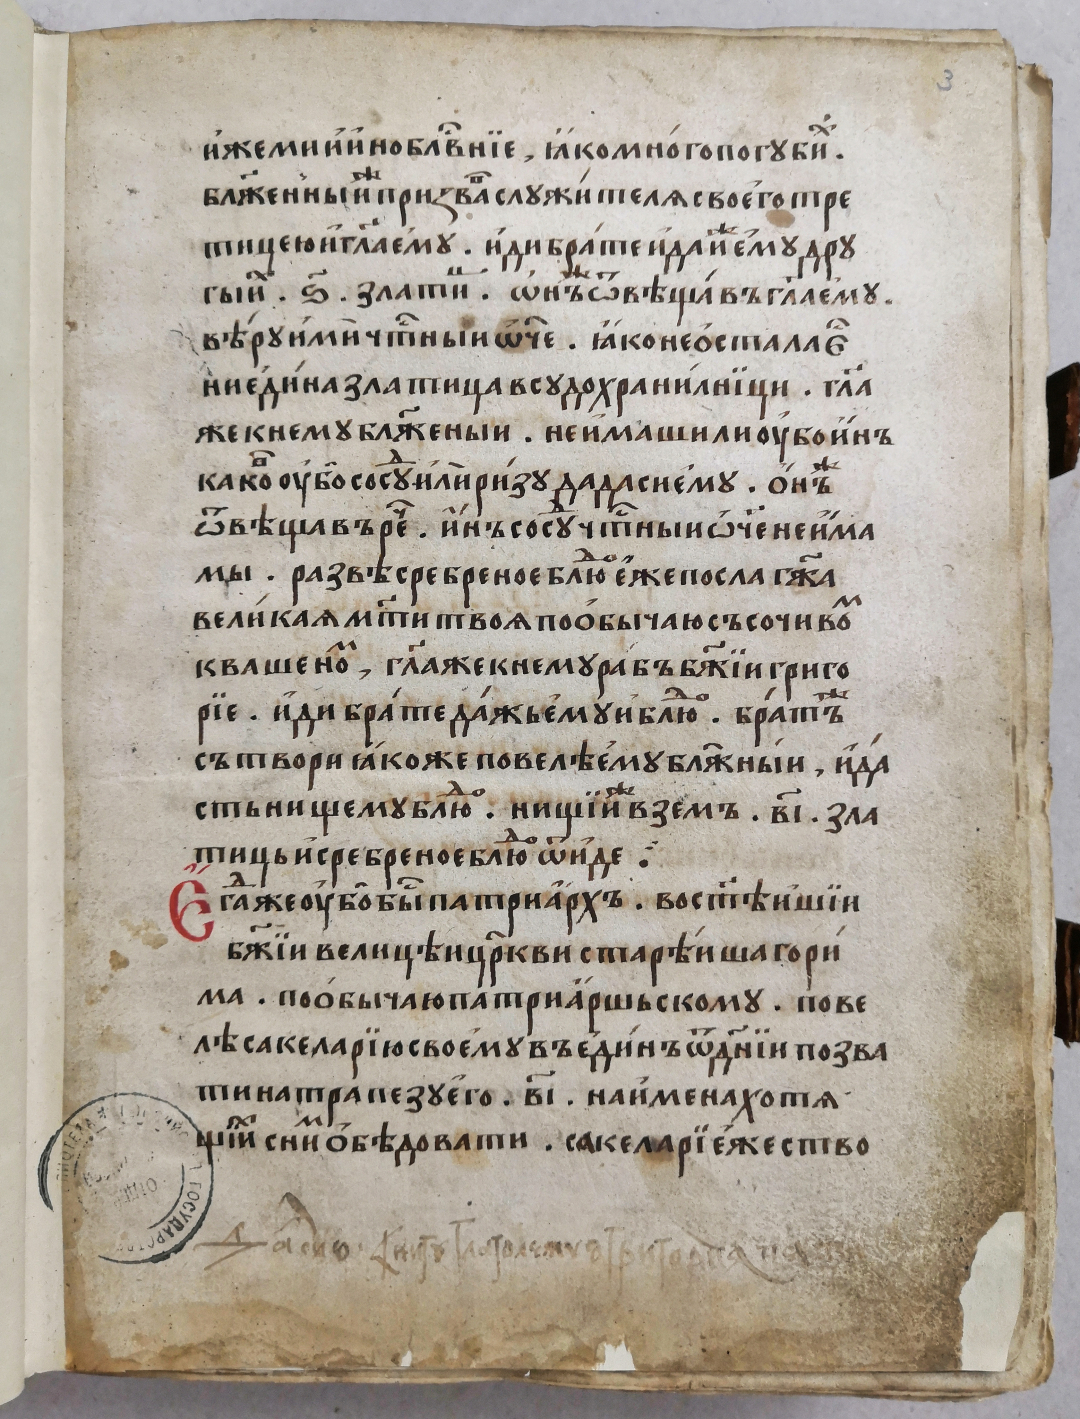 3
и҆жемни и҆ и҆но бл҃в҇нїе, ꙗ҆ко мно́го погꙋби́х.
бл҃же́нныйже призва́в слꙋжи́телѧ своего̀ тре
тицею и҆ гл҃а є҆мꙋ. и҆ди бра́те и҆ да́йже є҆мꙋ дрꙋ
гы́й. ѕ҃. златиц. ѡ҆нъже ѿвѣща́въ гл҃а є҆мꙋ.
вѣ́рꙋ и҆ми ми чт҇ныи ѡ҆́ч҃е. ꙗ҆ко не ѻ҆стала є҇
ни є҆ди́на златица в сꙋдохрани́лнїци. гл҃а
же к немꙋ бл҃же́ныи. не и҆маши ли ѹ҆бо и҆́нъ
каков ѹ҆бо сосꙋд и҆лѝ ри́зꙋ да даси є҆мꙋ. ѻ҆́нъже
ѿвѣщавъ рч҇е. и҆́нъ сосꙋд чт҇ныи ѡ҆́ч҃е не и҆́ма
мы. развѣ сребреное блюдо є҆́же посла гж҃а
вели́каѧ мт҃и твоѧ по ѻ҆бычаю съ сочивом
квашеном, гл҃а же к немꙋ рабъ бж҃їи григо
рїе. и҆́ди бра́те да́жь є҆мꙋ и блюдо. бра́тъже
сътвори ꙗ҆коже повелѣ є҆мꙋ бл҃жны́и, и҆ да́
сть нищемꙋ блюдо. нищїйже вземъ. в҃і. зла
тиць и҆ сребреное блюдо ѿи́де ⁘
Є҆гдаже ѹ҆́бо бы҇ патриа́рхъ. вост҃ѣи́шїи
бж҃їи велицѣи цр҃кви старѣ́ишаго ри́
ма. по ѻ҆бычаю патриа́ршьскомꙋ. пове
лѣ сакеларїю своемꙋ въ є҆ди́нъ ѿ дн҃їи позва
ти на трапезꙋ є҆го. в҃і. на и҆мена хотѧ
щїих с ним ѻ҆бѣдовати. сакеларїе́же ство